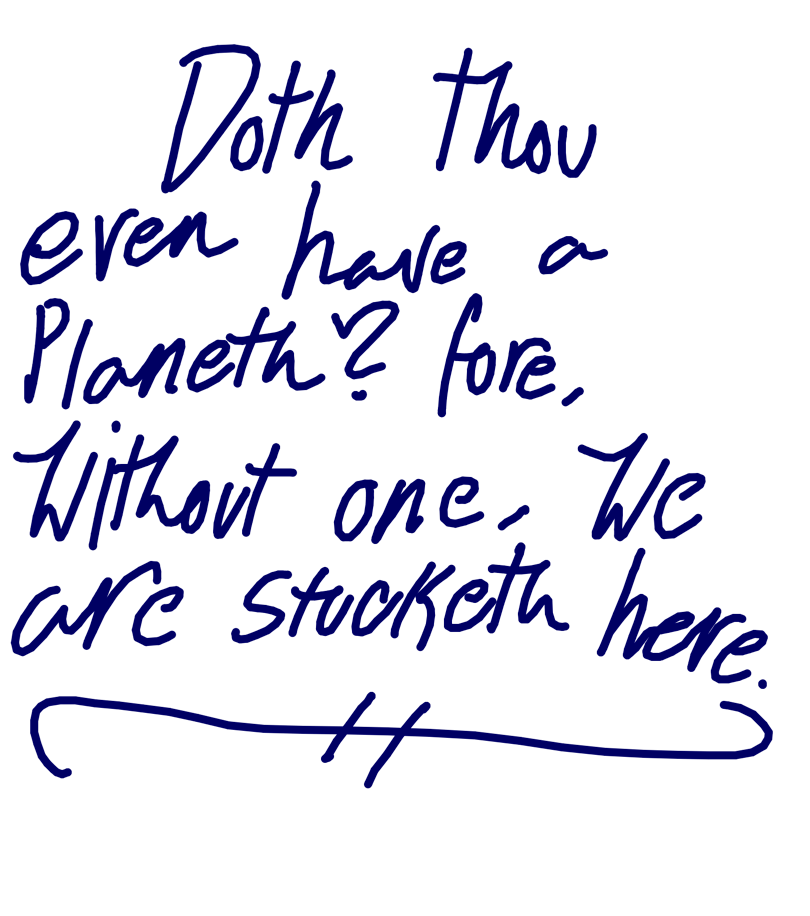 Doth thou
even have a
Planeth? fore,
Without one, We
are stucketh here.